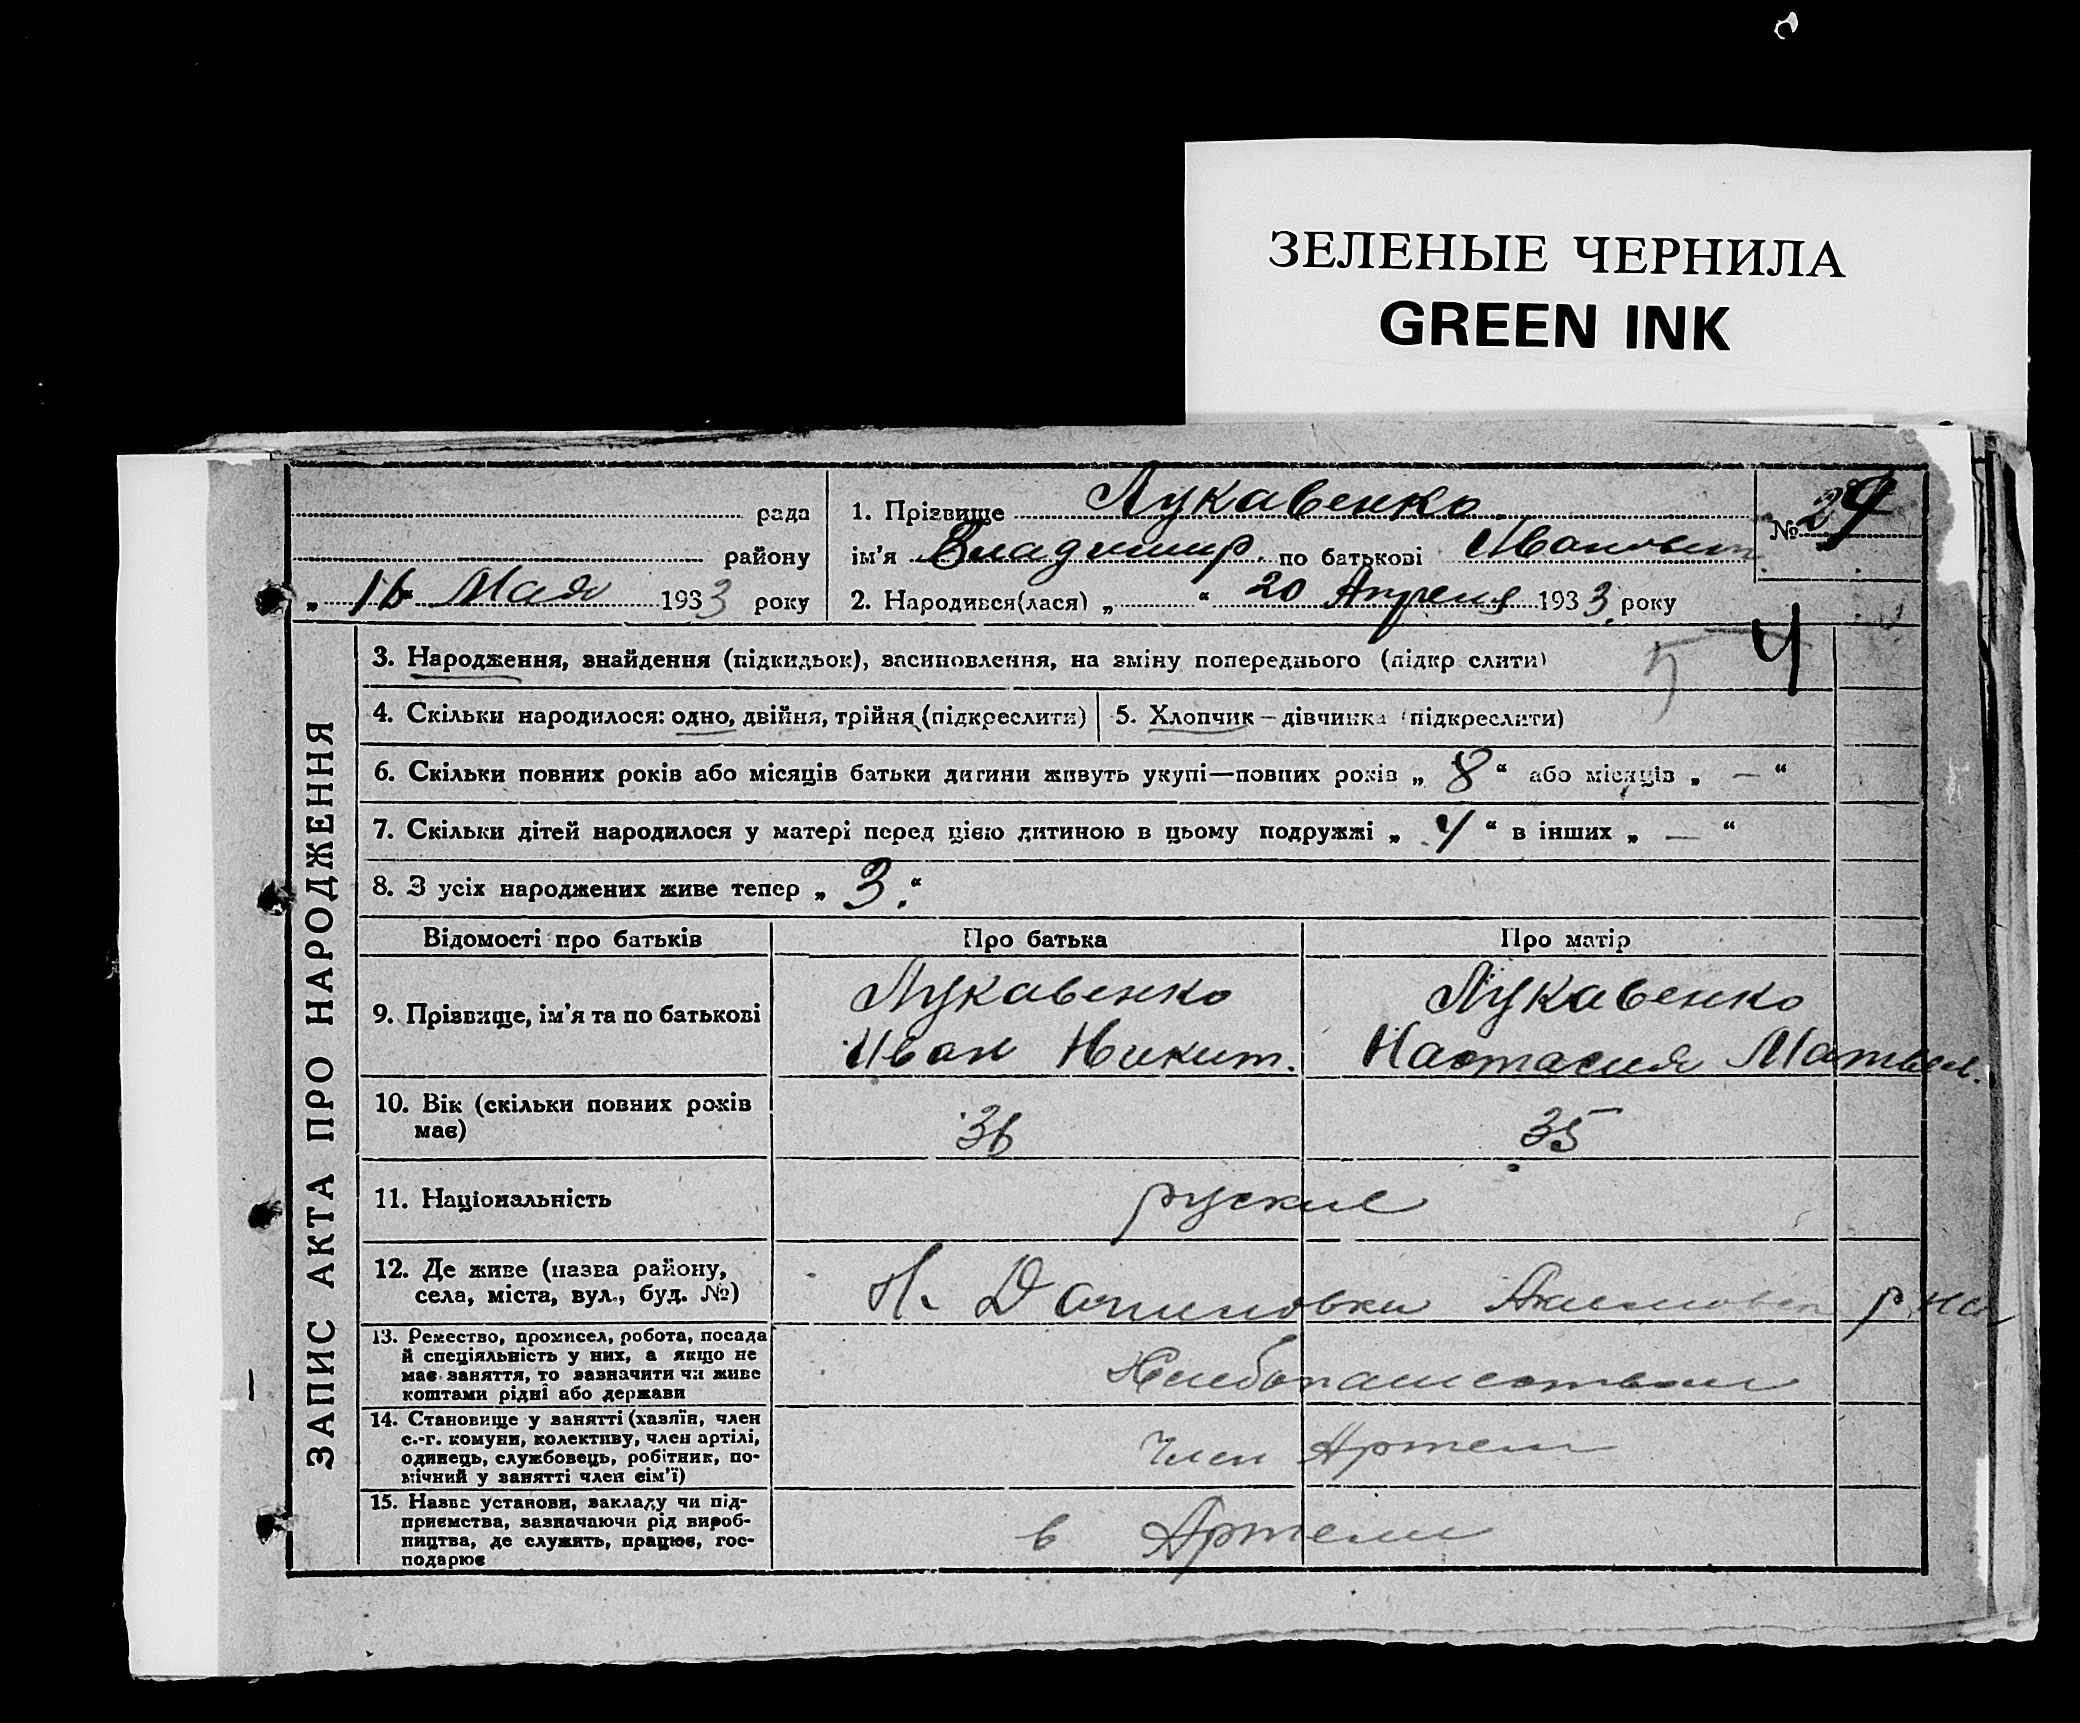 ЗЕЛЕНЫЕ ЧЕРНИЛА
GREEN INK
рада
району
„ 16 " Мая 1933 року
1. Прізвище Лукавенко
ім'я Владимир. по батькові Иванович
2. Народився(лася) „ " 20 Апреля 1933. року
№ 29
ЗАПИС АКТА ПРО НАРОДЖЕННЯ
3. Народження, знайдення (підкидьок), васиновлення, на зміну попереднього (підкр слити)
5 4
4. Скільки народилося: одно, двійня, трійня (підкреслити)
5. Хлопчик – дівчинка (підкреслити)
6. Скільки повних років або місяців батьки дитини живуть укупі—повних років „ 8 " або місяців „ — "
7. Скільки дітей народилося у матері перед цією дитиною в цьому подружжі „ 4 " в інших „ — "
8. З усіх народжених живе тепер „ 3. "
Відомості про батьків
Про батька
Про матір
9. Прізвище, ім'я та по батькові
Лукавенко
Иван Никит.
Лукавенко
Настасия Матвеев.
10. Вік (скільки повних років
має)
36
35
11. Національність
руские
12. Де живе (назва району,
села, міста, вул., буд. №)
Н. Даниловка Акимовск р на
13. Ремество, промисел, робота, посада
й спеціяльність у них, а якщо не
має заняття, то зазначити чи живе
коштами рідні або держави
Хлебопашеством
14. Становище у занятті (хазяїн, член
с.-г. комуни, колективу, член артілі,
одинець, службовець, робітник, по-
мічний у занятті член сім'ї)
Член Артели
15. Назва установи, закладу чи під-
приємства, зазначаючи рід вироб-
ництва, де служить, працює, гос-
подарює
в Артели